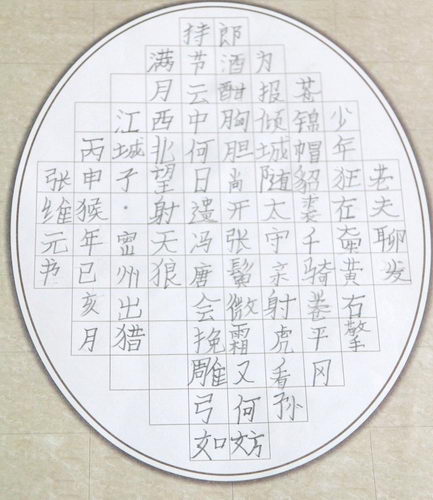 老夫聊发
少年狂左牵黄右擎
苍锦帽貂裘千骑卷平冈
为报倾城随太守亲射虎看孙
郎酒酣胸胆尚开张鬓微霜又何妨
持节云中何日遣冯唐会挽雕弓如
满月西北望射天狼
江城子·密州出猎
丙申猴年已亥月
张维元书